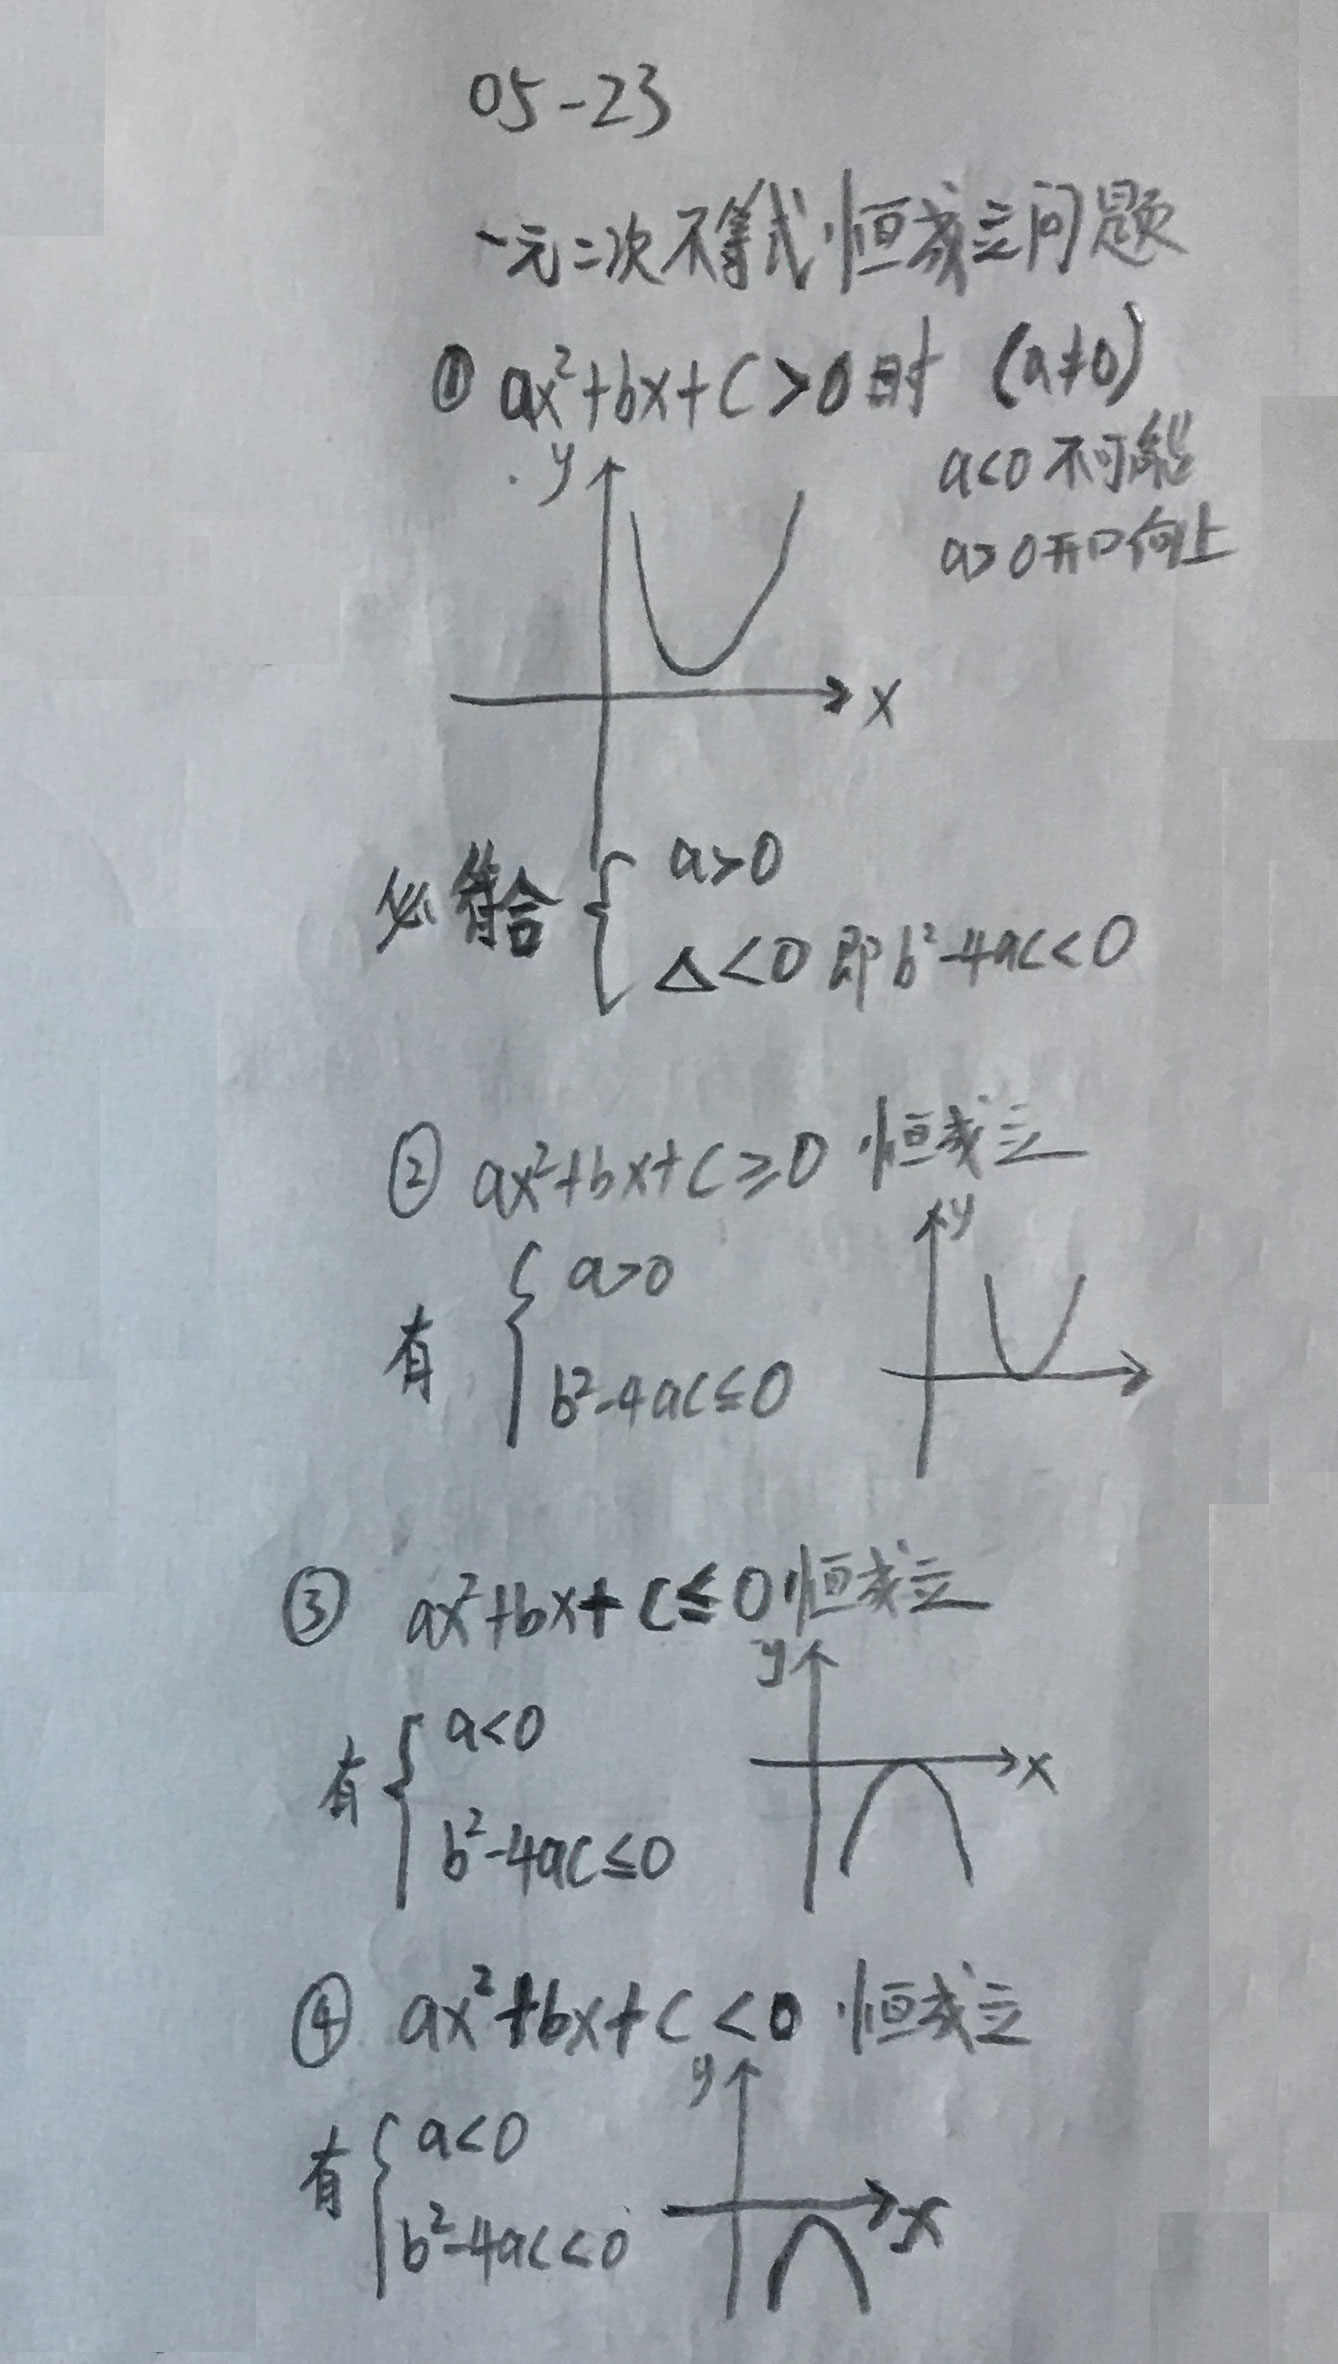 05-23
一元二次不等式恒成立问题
① ax²+bx+c>0时 (a≠0)
a<0不可能
a>0开口向上
y
x
必符合 { a>0
Δ<0即b²-4ac<0
② ax²+bx+c≥0 恒成立
y
有 { a>0
b²-4ac≤0
③ ax²+bx+c≤0恒成立
y
有 { a<0
x
b²-4ac≤0
④ ax²+bx+c<0 恒成立
y
有 { a<0
b²-4ac<0
x